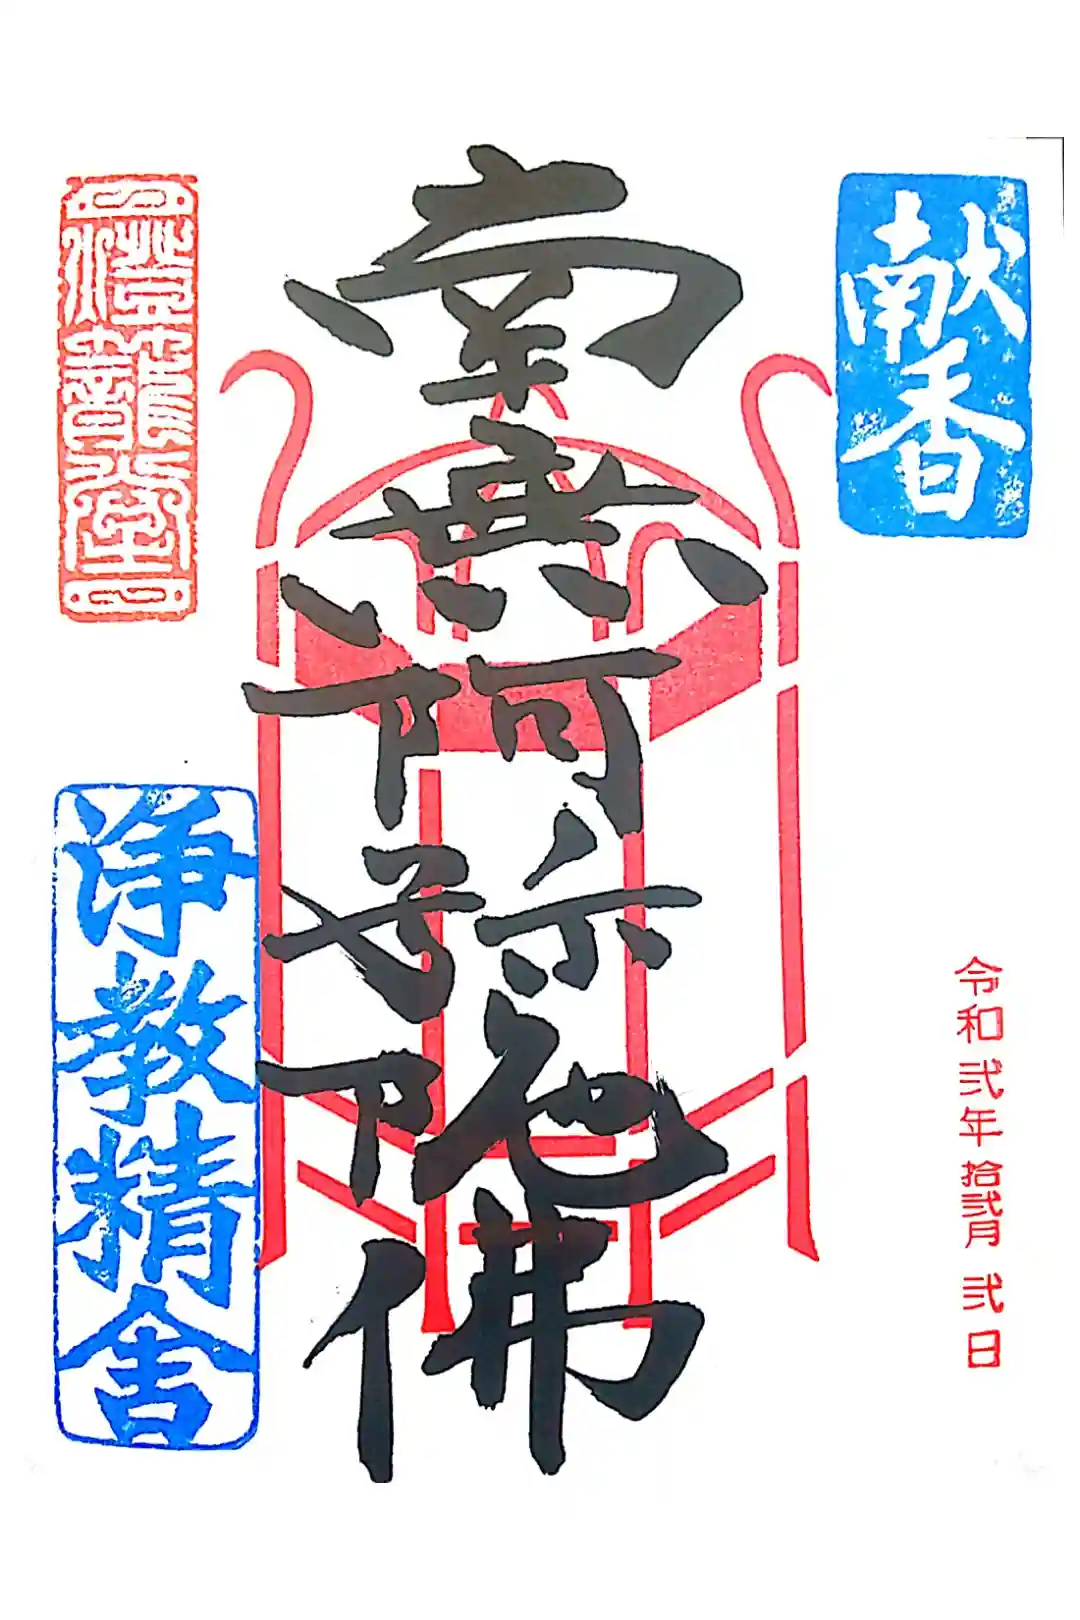 献香
令和弐年拾弐月弐日
南無阿弥陀佛
燈龍堂
浄教精舎